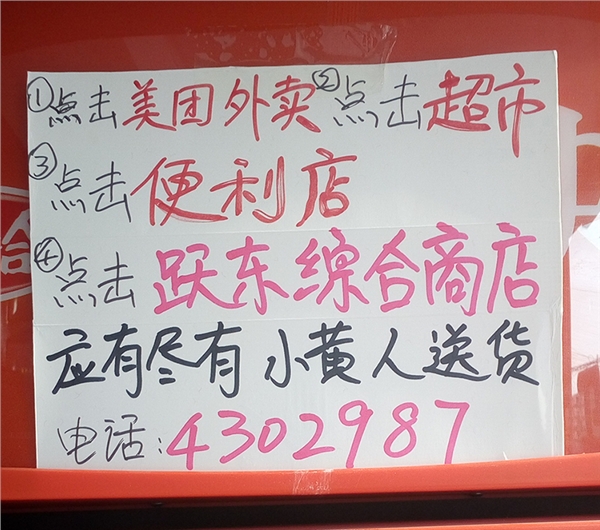 ①点击美团外卖②点击超市
③点击便利店
④点击跃东综合商店
应有尽有小黄人送货
电话:4302987
合